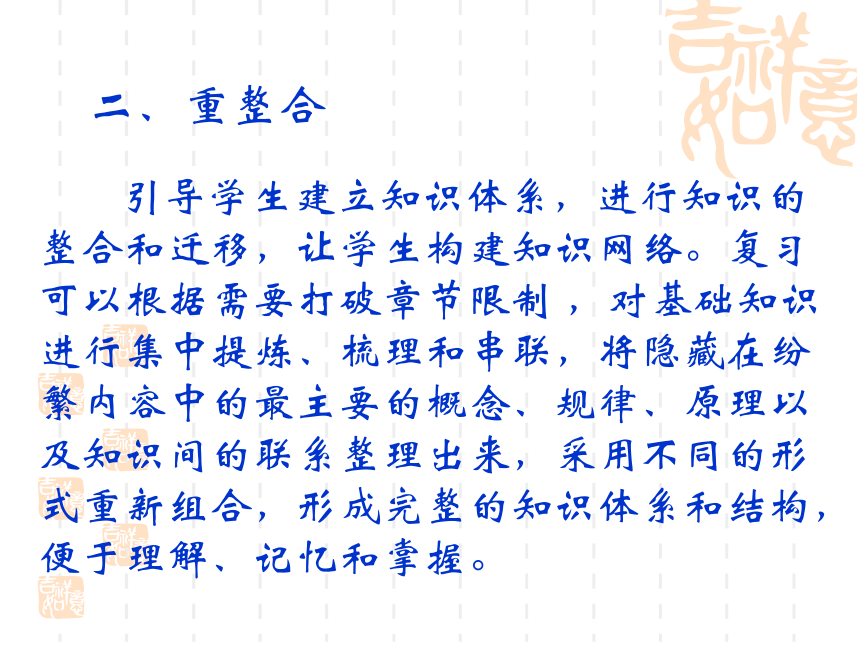 吉祥如意
二、重整合
引导学生建立知识体系，进行知识的
整合和迁移，让学生构建知识网络。复习
可以根据需要打破章节限制，对基础知识
进行集中提炼、梳理和串联，将隐藏在纷
繁内容中的最主要的概念、规律、原理以
及知识间的联系整理出来，采用不同的形
式重新组合，形成完整的知识体系和结构，
便于理解、记忆和掌握。
吉祥如意
吉祥如意
吉祥如意
吉祥如意
吉祥如意
吉祥如意